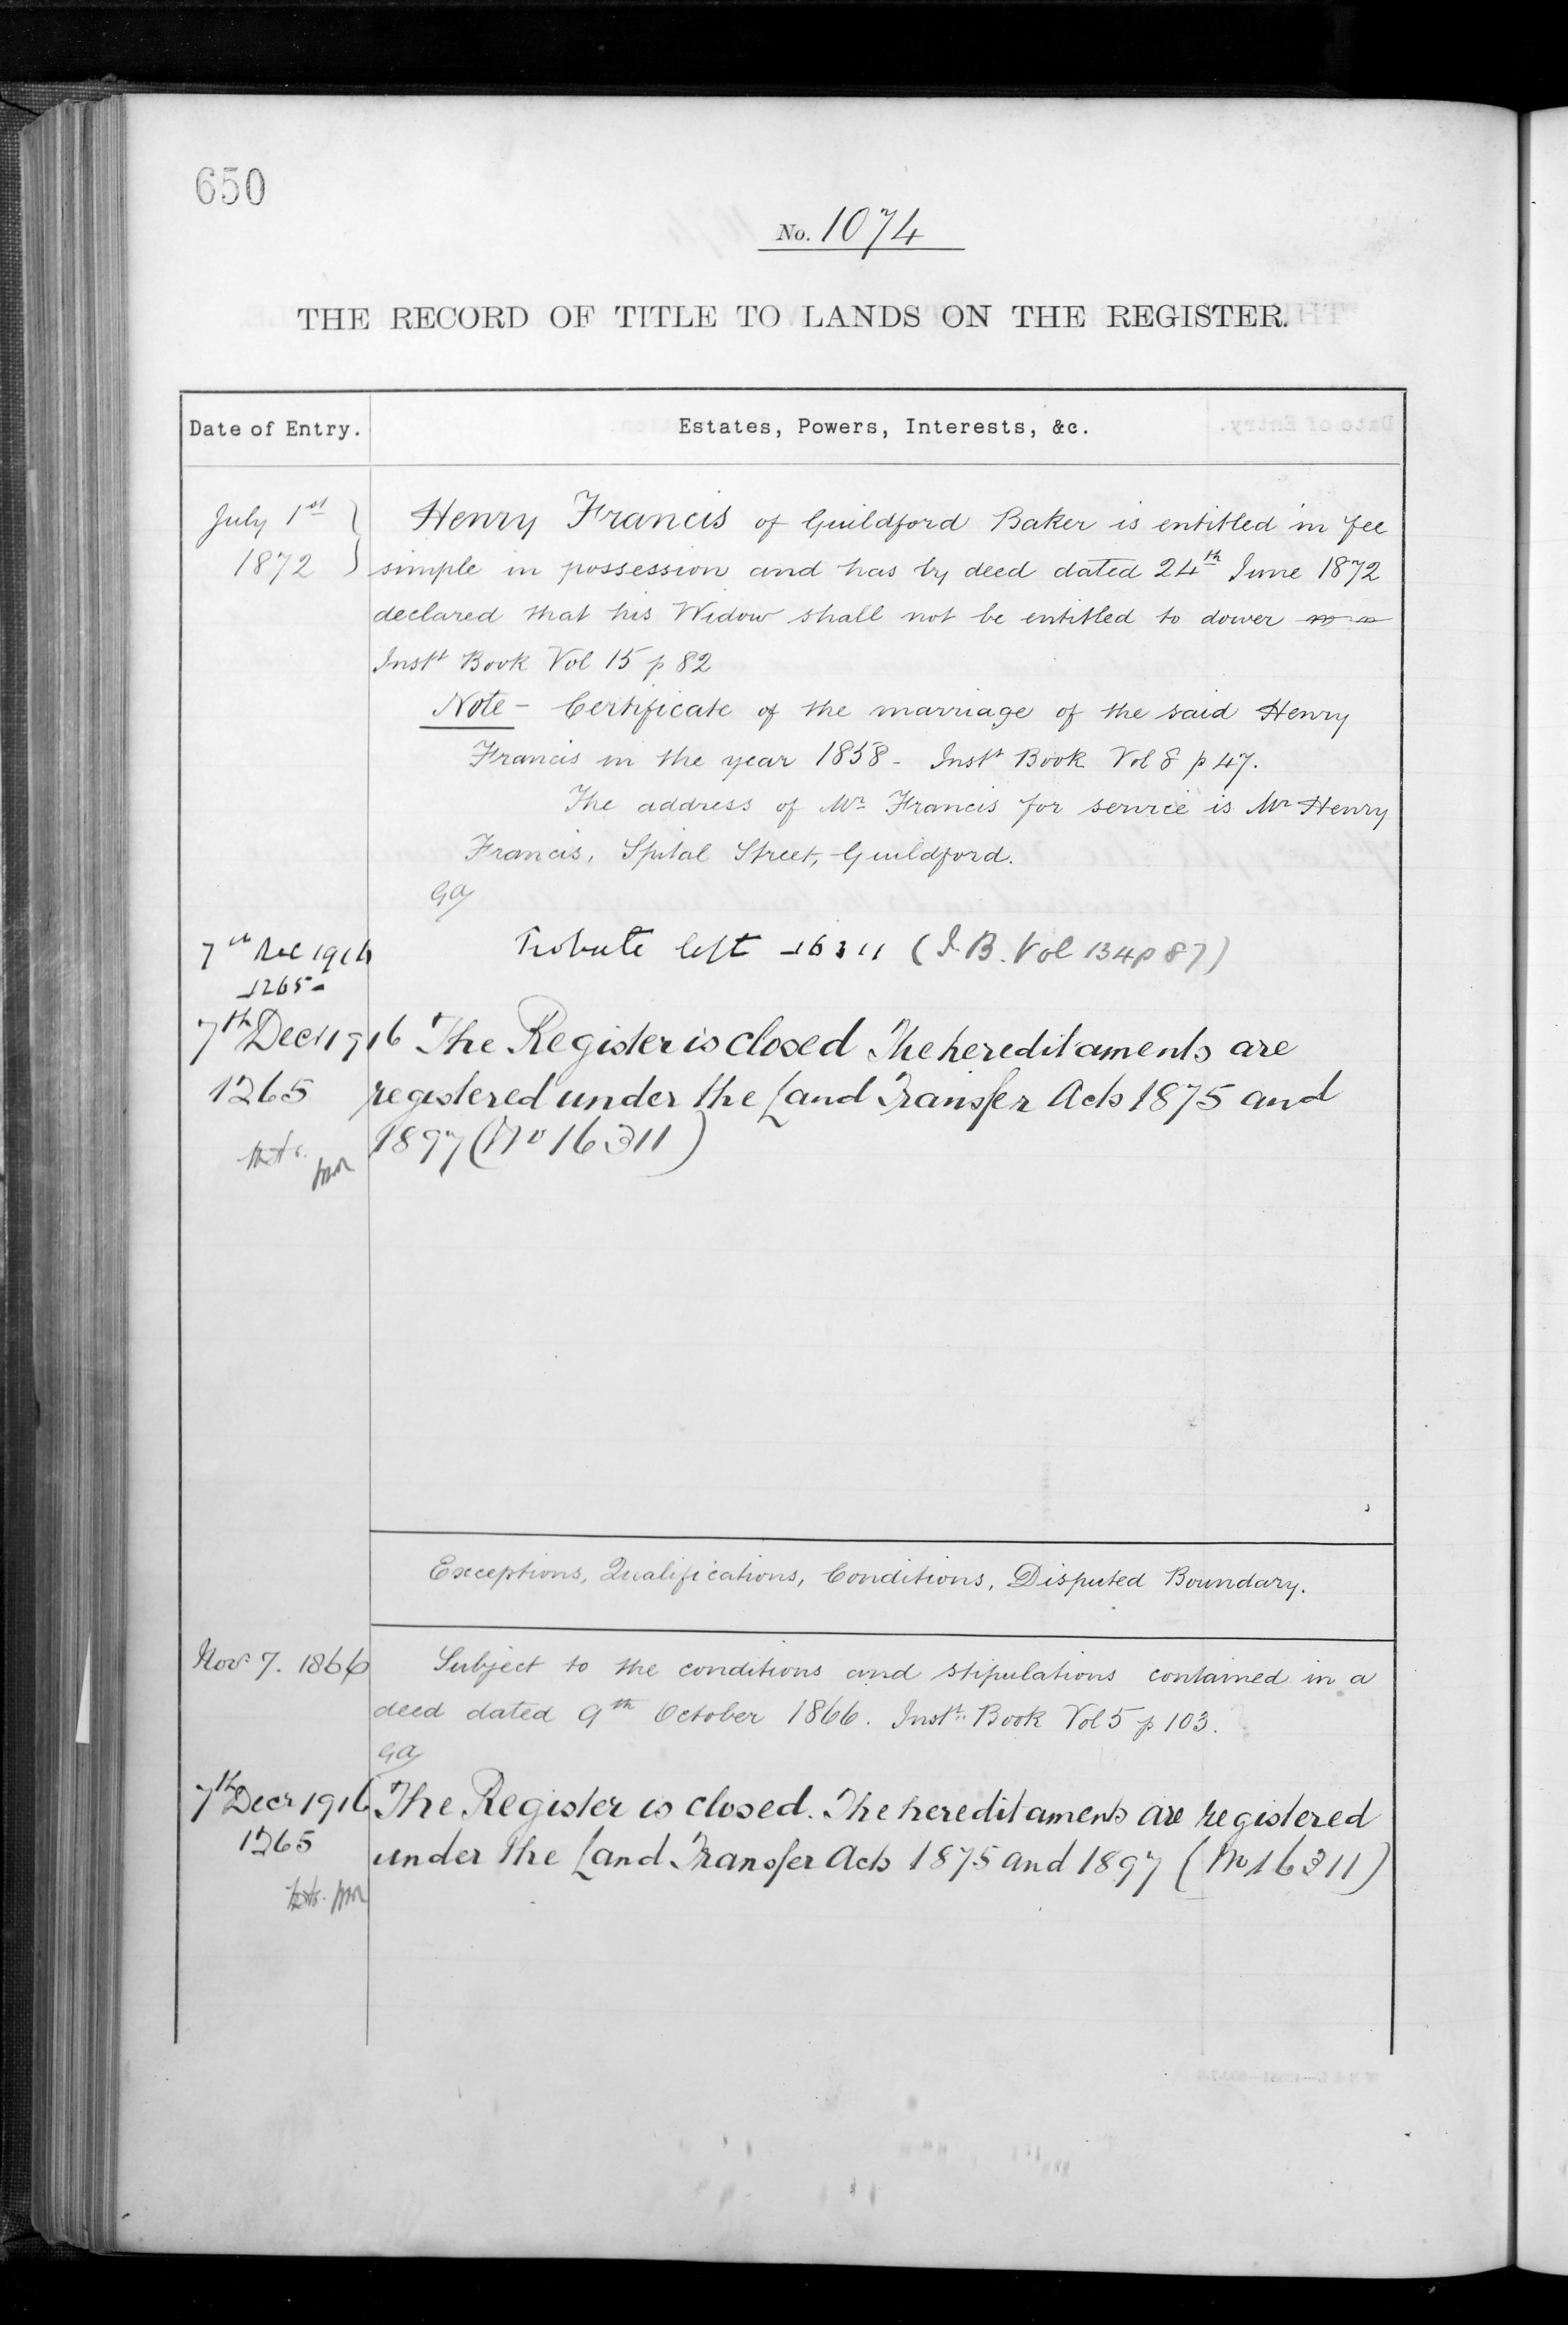 650
No. 1074
THE RECORD OF TITLE TO LANDS ON THE REGISTER.
Date of Entry.
Estates, Powers, Interests, &c.
July 1st 1872
Henry Francis of Guildford Baker is entitled in fee
simple in possession and has by deed dated 24th June 1872
declared that his Widow shall not be entitled to dower
Instt Book Vol 15 p 82
Note - Certificate of the marriage of the said Henry
Francis in the year 1858 - Instt Book Vol 8 p 47.
The address of Mr Francis for service is Mr Henry
Francis, Spital Street, Guildford.
GA
7th Dec 1916
1265
Probate left 16311 (I.B. Vol 134 p 87)
7th Decr 1916 The Register is closed The hereditaments are
1265 registered under the Land Transfer Acts 1875 and
1897 (No 16311)
Exceptions, Qualifications, Conditions, Disputed Boundary.
Novr 7. 1866 Subject to the conditions and stipulations contained in a
deed dated 9th October 1866. Instt. Book Vol 5 p 103.
GA
7th Decr 1916 The Register is closed. The hereditaments are registered
1265 under the Land Transfer Acts 1875 and 1897 (No 16311)